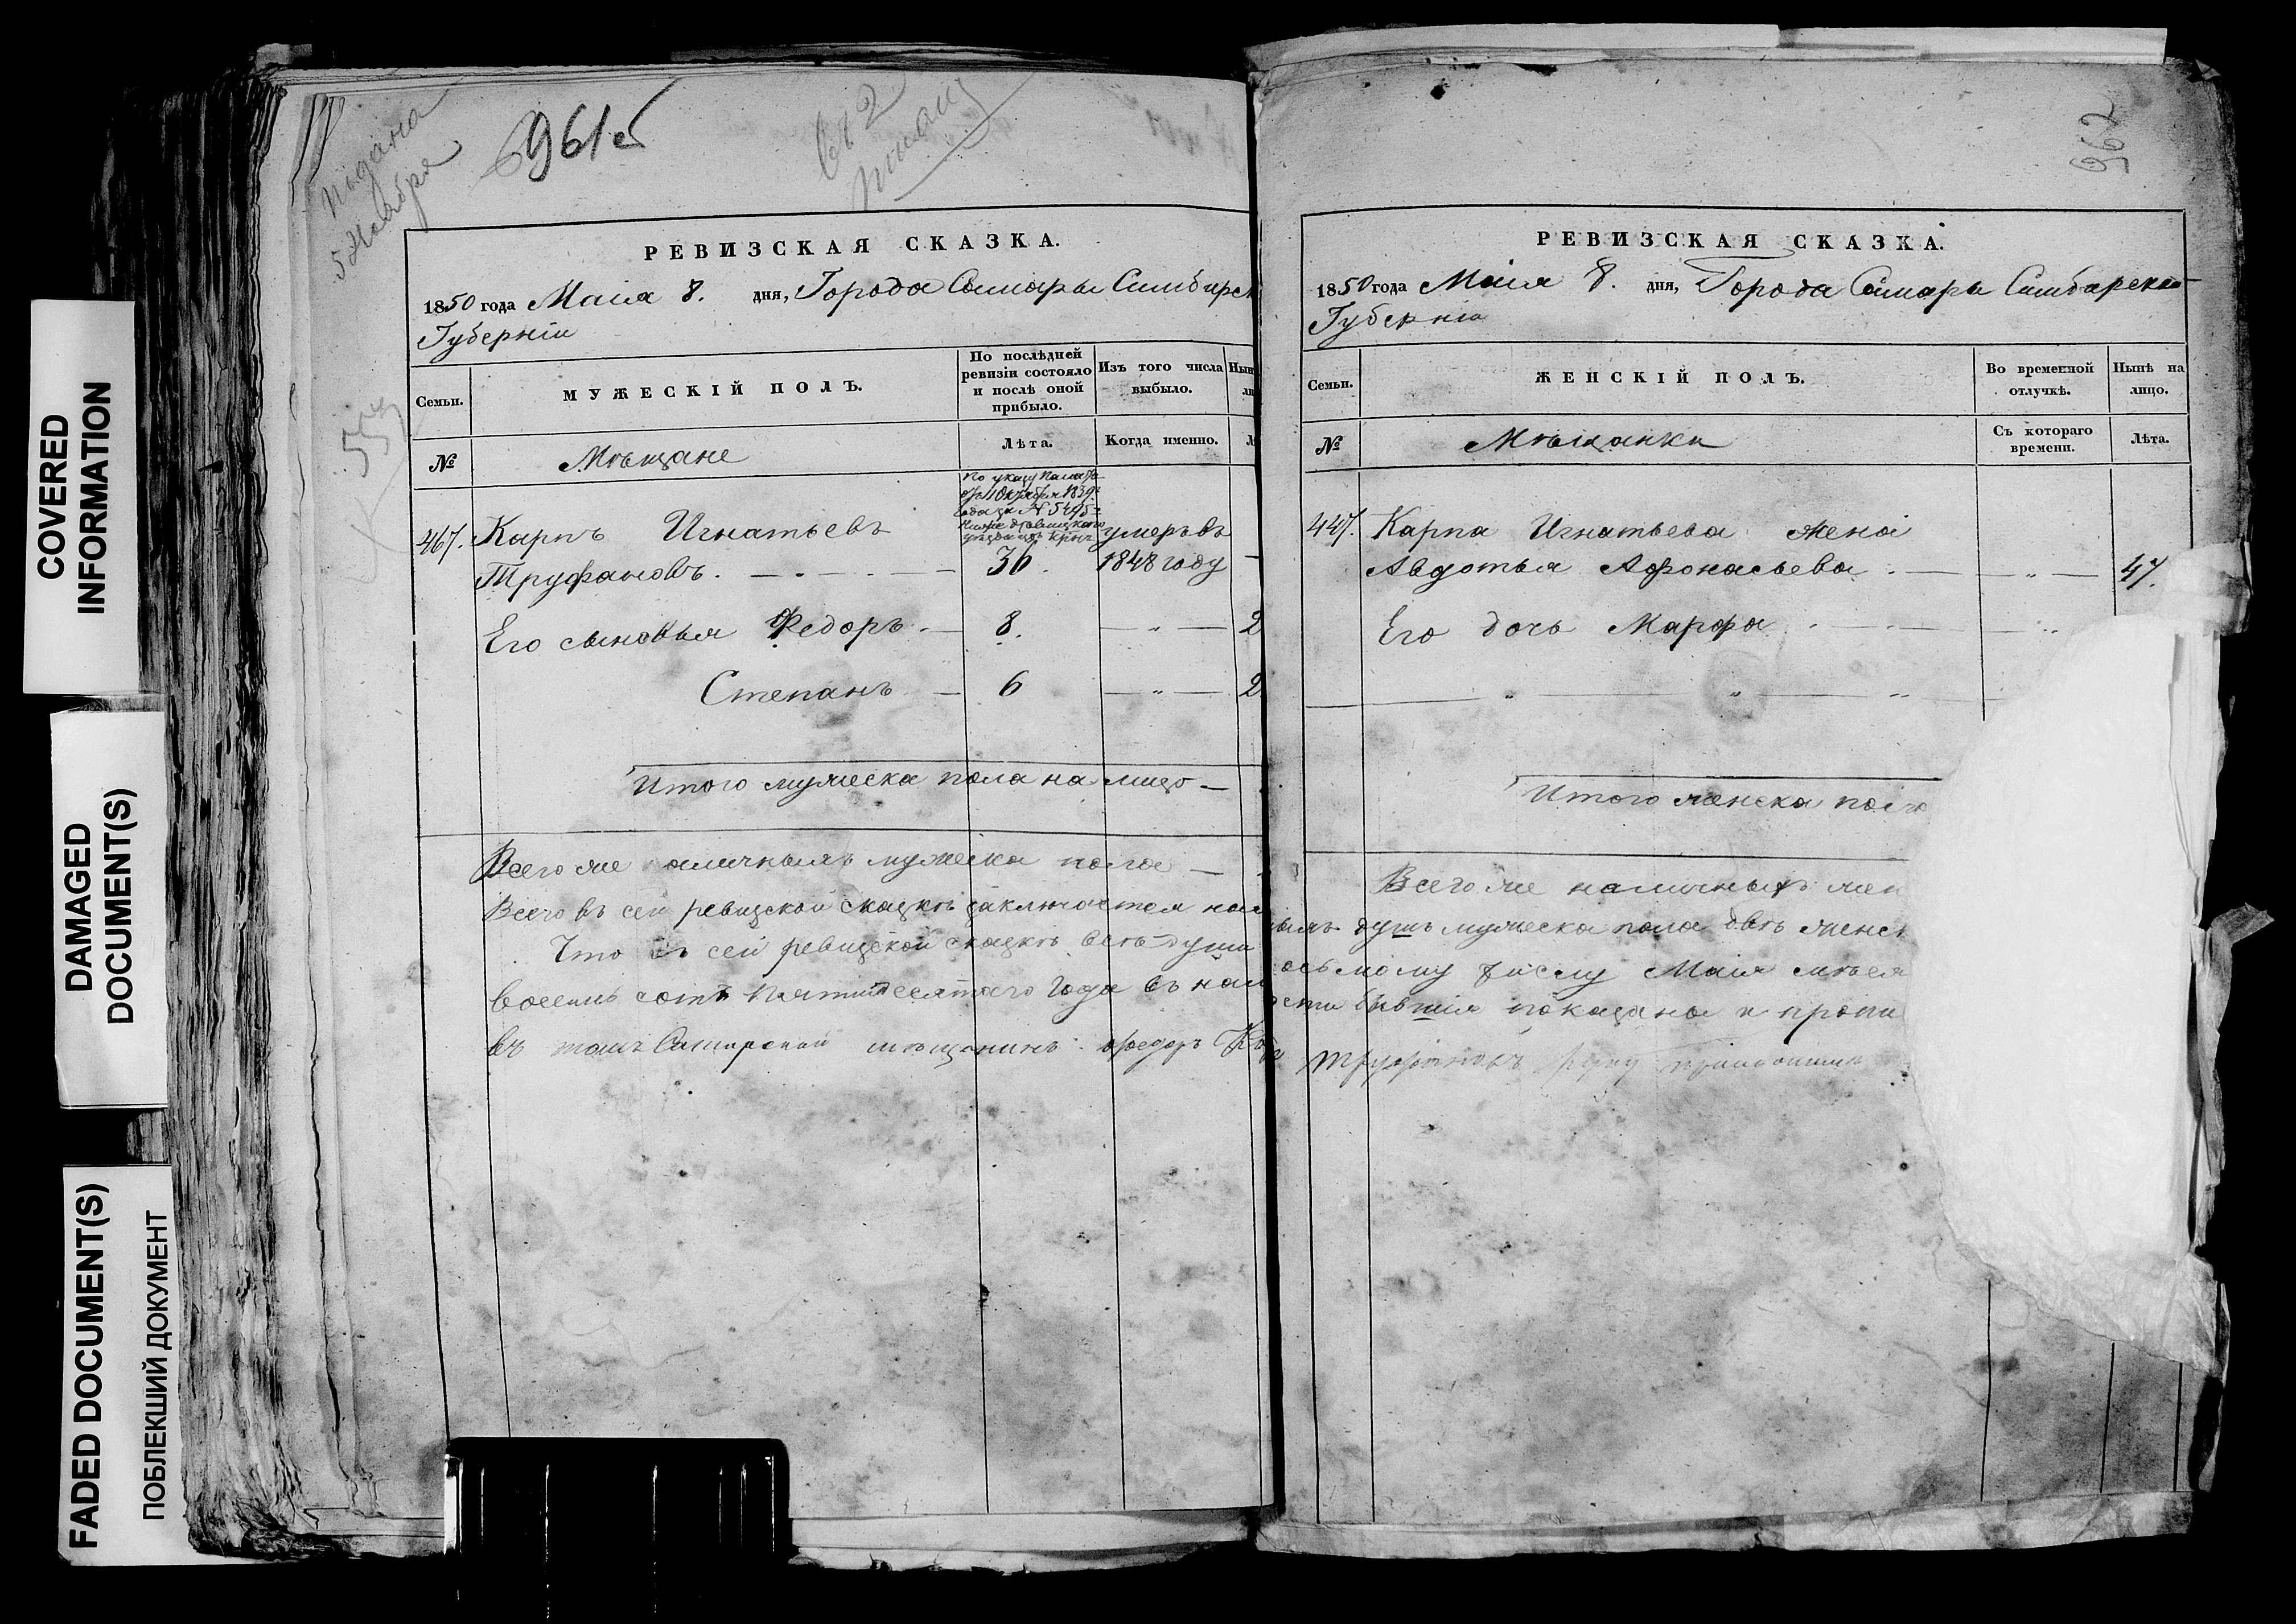 COVERED
INFORMATION
DAMAGED
DOCUMENT(S)
FADED DOCUMENT(S)
ПОБЛЕКШИЙ ДОКУМЕНТ
Подана
5 Ноября
961 об
РЕВИЗСКАЯ СКАЗКА.
1850 года Маія 8. дня, Города Самары Симбирск
Губерніи
Семьи.
МУЖЕСКІЙ ПОЛЪ.
По послѣдней
ревизіи состояло
и послѣ оной
прибыло.
Изъ того числа
выбыло.
№
Мѣщане
Лѣта.
Когда именно.
По указу
1839
года за № 5495
467. Карпъ Игнатьевъ умеръ въ
Труфановъ. 36. 1848 году
Его сыновья Федоръ 8. 2
Степанъ 6 2
Итого мужеска пола на лицо
Всего же наличныхъ мужеска пола
Всего въ сей ревизской сказкѣ заключается нал
Что въ сей ревизской сказкѣ всѣ души
восемь сотъ пятидесятаго года въ нал
въ томъ Самарской мѣщанинъ Федоръ Кар
962
РЕВИЗСКАЯ СКАЗКА.
1850 года Маія 8. дня, Города Самары Симбирской
Губерніи
Семьи.
ЖЕНСКІЙ ПОЛЪ.
Во временной
отлучкѣ.
Нынѣ на
лицо.
№
Мѣщанки
Съ котораго
времени.
Лѣта.
447. Карпа Игнатьева жена
Авдотья Афонасьева 47.
Его дочь Марфа
Итого женска пола
Всего же наличныхъ жен
душъ мужеска пола двѣ женск
осьмому числу Маія мѣся
бывшія показана и пропи
Труфановъ руку приложилъ